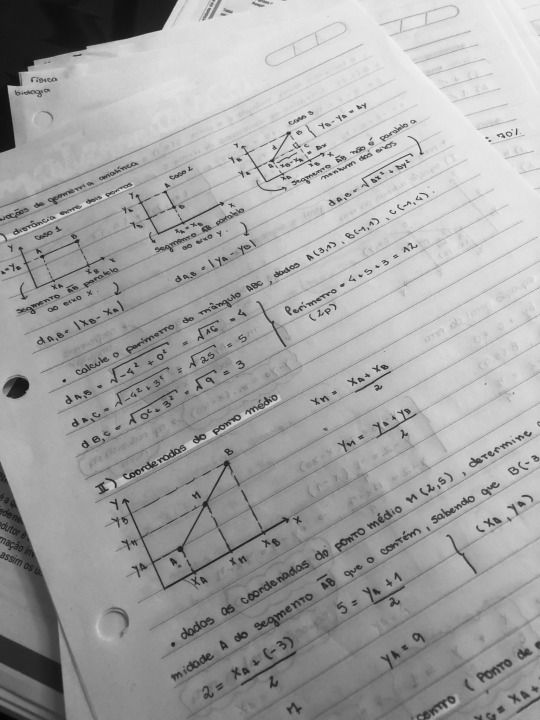 física
biologia
noções de geometria analítica
) distância entre dois pontos
Caso 1
segmento AB paralelo
ao eixo x.
dA,B = |XB - XA|
Caso 2
segmento AB paralelo
ao eixo y.
dA,B = |YA - YB|
Caso 3
YB - YA = Δy
XB - XA = Δx
segmento AB não é paralelo a
nenhum dos eixos
dA,B = √Δx² + Δy²
70%
• calcule o perímetro do triângulo ABC, dados A(3,1), B(-1,1), C(-1,4).
dA,B = √-4² + 0² = √16 = 4
dA,C = √-4² + 3² = √25 = 5
dB,C = √0² + 3² = √9 = 3
Perímetro = 4 + 5 + 3 = 12
(2p)
II) coordenadas do ponto médio
XM = XA + XB / 2
YM = YA + YB / 2
Y
YB
YM
YA
A
M
B
XA
XM
XB
X
• dados as coordenadas do ponto médio M (2,5), determine
midade A do segmento AB que o contém, sabendo que B(-3,
2 = XA + (-3) / 2
5 = YA + 1 / 2
(XA, YA)
YA = 9
centro (ponto de